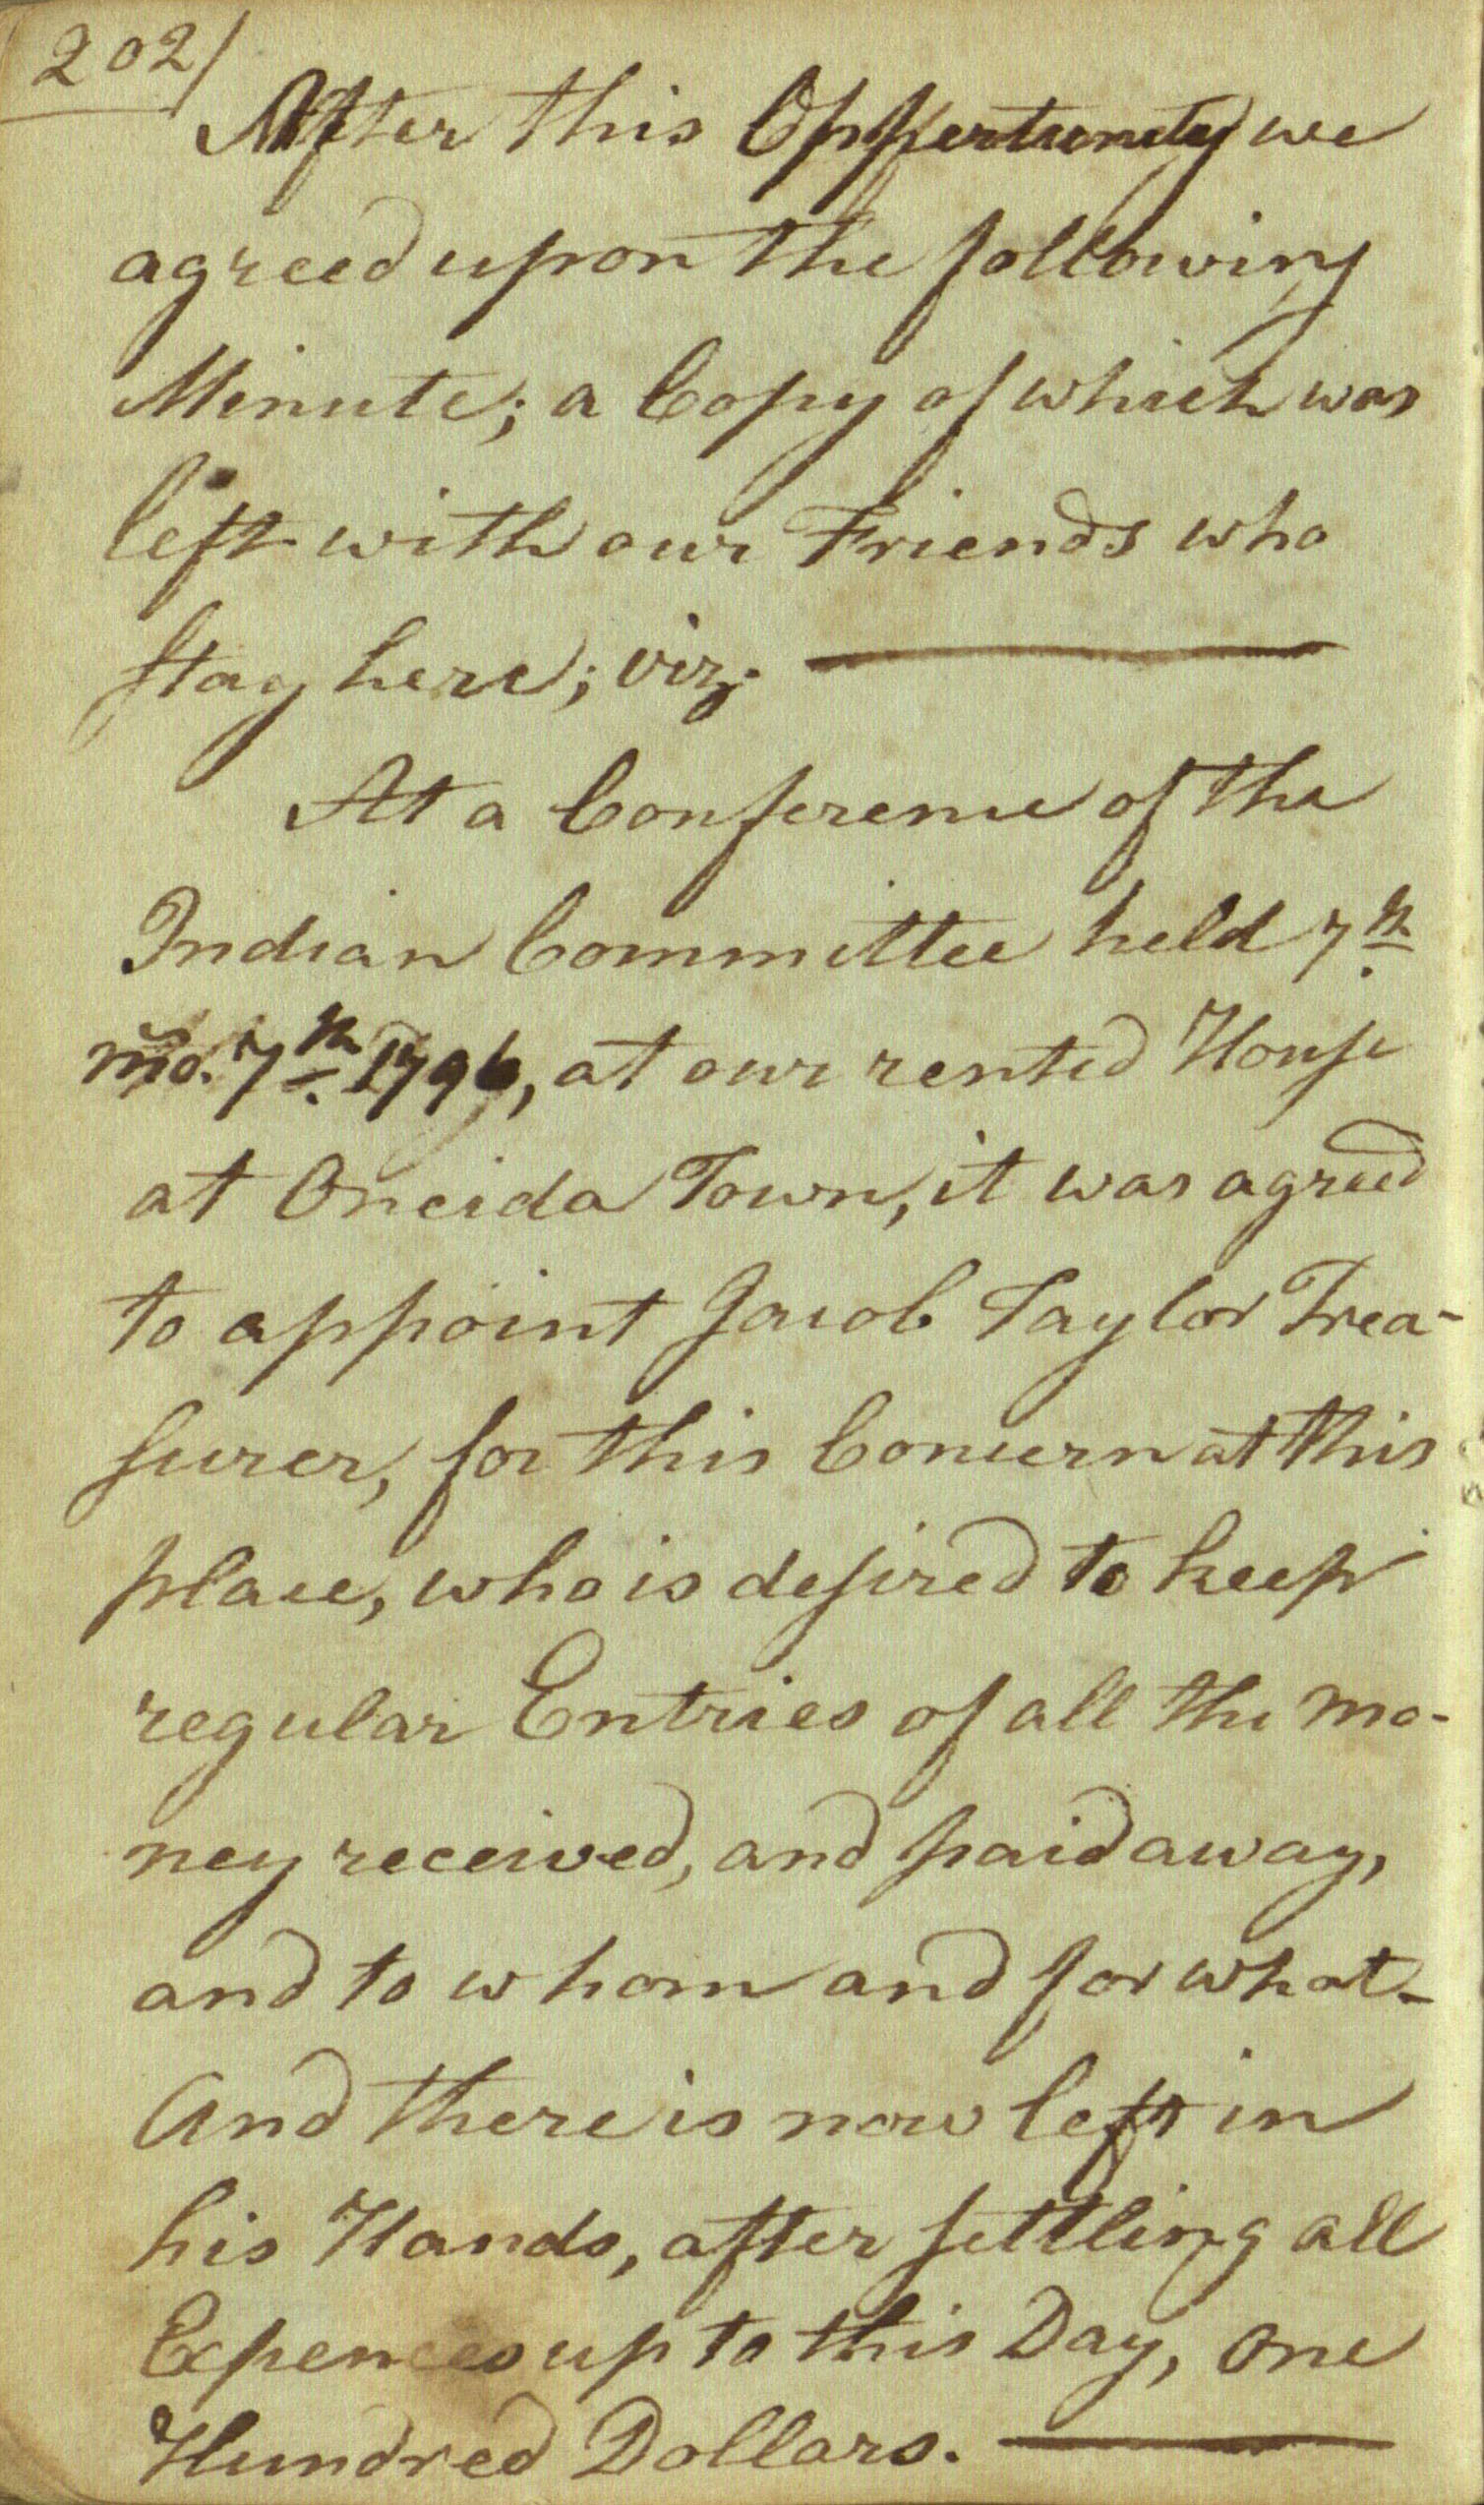 202/
After this Oppertunity we
agreed upon the following
Minute; a Copy of which was
left with our Friends who
stay here; viz. —
At a Conference of the
Indian Committee held 7th
mo. 7th 1796, at our rented House
at Oneida Town, it was agreed
to appoint Jacob Taylor Trea-
surer, for this Concern at this
place, who is desired to keep
regular Entries of all the mo-
ney received, and paid away,
and to whom and for what-
And there is now left in
his Hands, after settling all
Expences up to this Day, one
Hundred Dollars. —